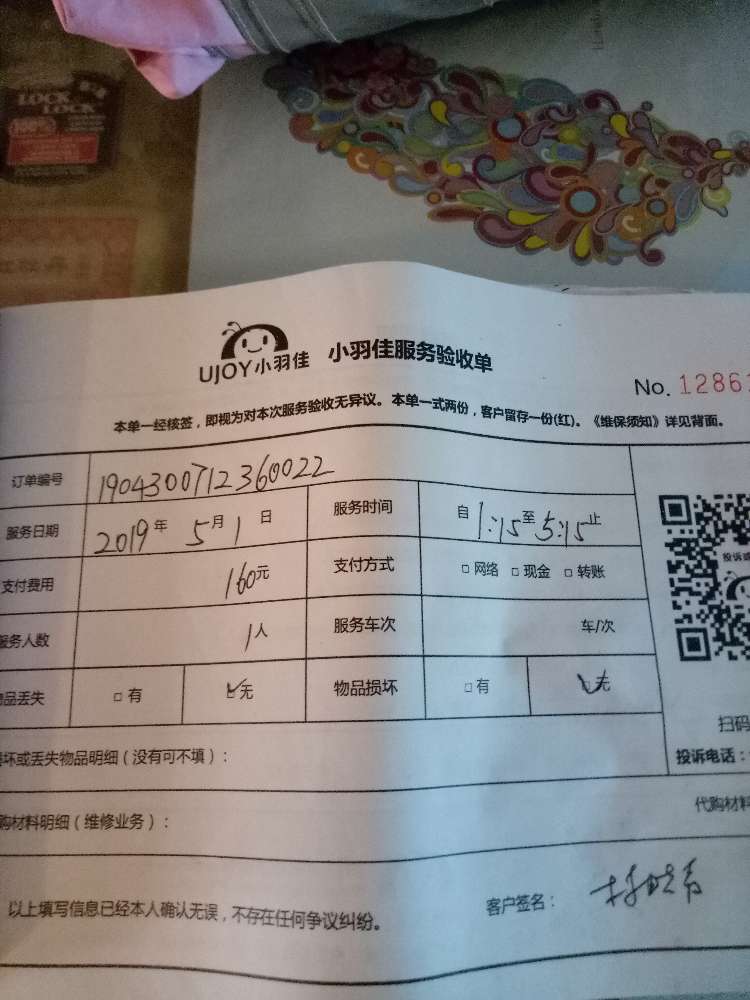 LOCK
LOCK
100%
UJOY小羽佳 小羽佳服务验收单
No. 12861
本单一经核签，即视为对本次服务验收无异议。本单一式两份，客户留存一份(红)。《维保须知》详见背面。
订单编号 1904300712360022
服务日期 2019年 5月1日 服务时间 自1:15至5:15止
支付费用 160元 支付方式 □网络 □现金 □转账
服务人数 1人 服务车次 车/次
品丢失 □有 ☑无 物品损坏 □有 ☑无
投诉或
扫码
投诉电话：
坏或丢失物品明细（没有可不填）：
购材料明细（维修业务）： 代购材料
以上填写信息已经本人确认无误，不存在任何争议纠纷。 客户签名：